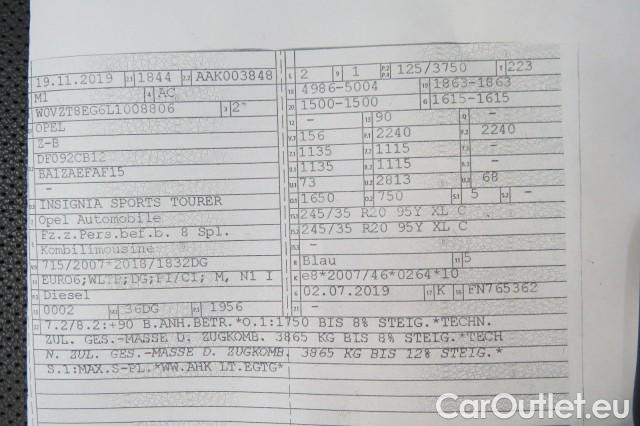 19.11.2019 2.1 1844 2.2 AAK003848
M1 4 AC
W0VZT8EG6L1008806 3 2
OPEL
Z-B
DF092CB12
BA1ZAEFAF15
-
INSIGNIA SPORTS TOURER
Opel Automobile
Fz.z.Pers.bef.b. 8 Spl.
Kombilimousine
715/2007*2018/1832DG
EURO6;WLTP;DG;PI/CI; M, N1 I
Diesel
0002 36DG 1956
L 2 9 1 P.2 P.4 125/3750 T 223
18 4986-5004 19 1863-1863
20 1500-1500 G 1615-1615
12 - 13 90 Q -
V.7 156 F.1 2240 F.2 2240
7.1 1135 7.2 1115 7.3 -
8.1 1135 8.2 1115 8.3 -
U.1 73 U.2 2813 U.3 68
O.1 1650 O.2 750 S.1 5 S.2 -
15.1 245/35 R20 95Y XL C
15.2 245/35 R20 95Y XL C
15.3 -
R Blau 11 5
K e8*2007/46*0264*10
6 02.07.2019 17 K 16 FN765362
21 -
22 7.2/8.2:+90 B.ANH.BETR.*O.1:1750 BIS 8% STEIG.*TECHN.
ZUL. GES.-MASSE D. ZUGKOMB. 3865 KG BIS 8% STEIG.*TECH
N. ZUL. GES.-MASSE D. ZUGKOMB. 3865 KG BIS 12% STEIG.*
S.1:MAX.S-PL.*WW.AHK LT.EGTG*
CarOutlet.eu